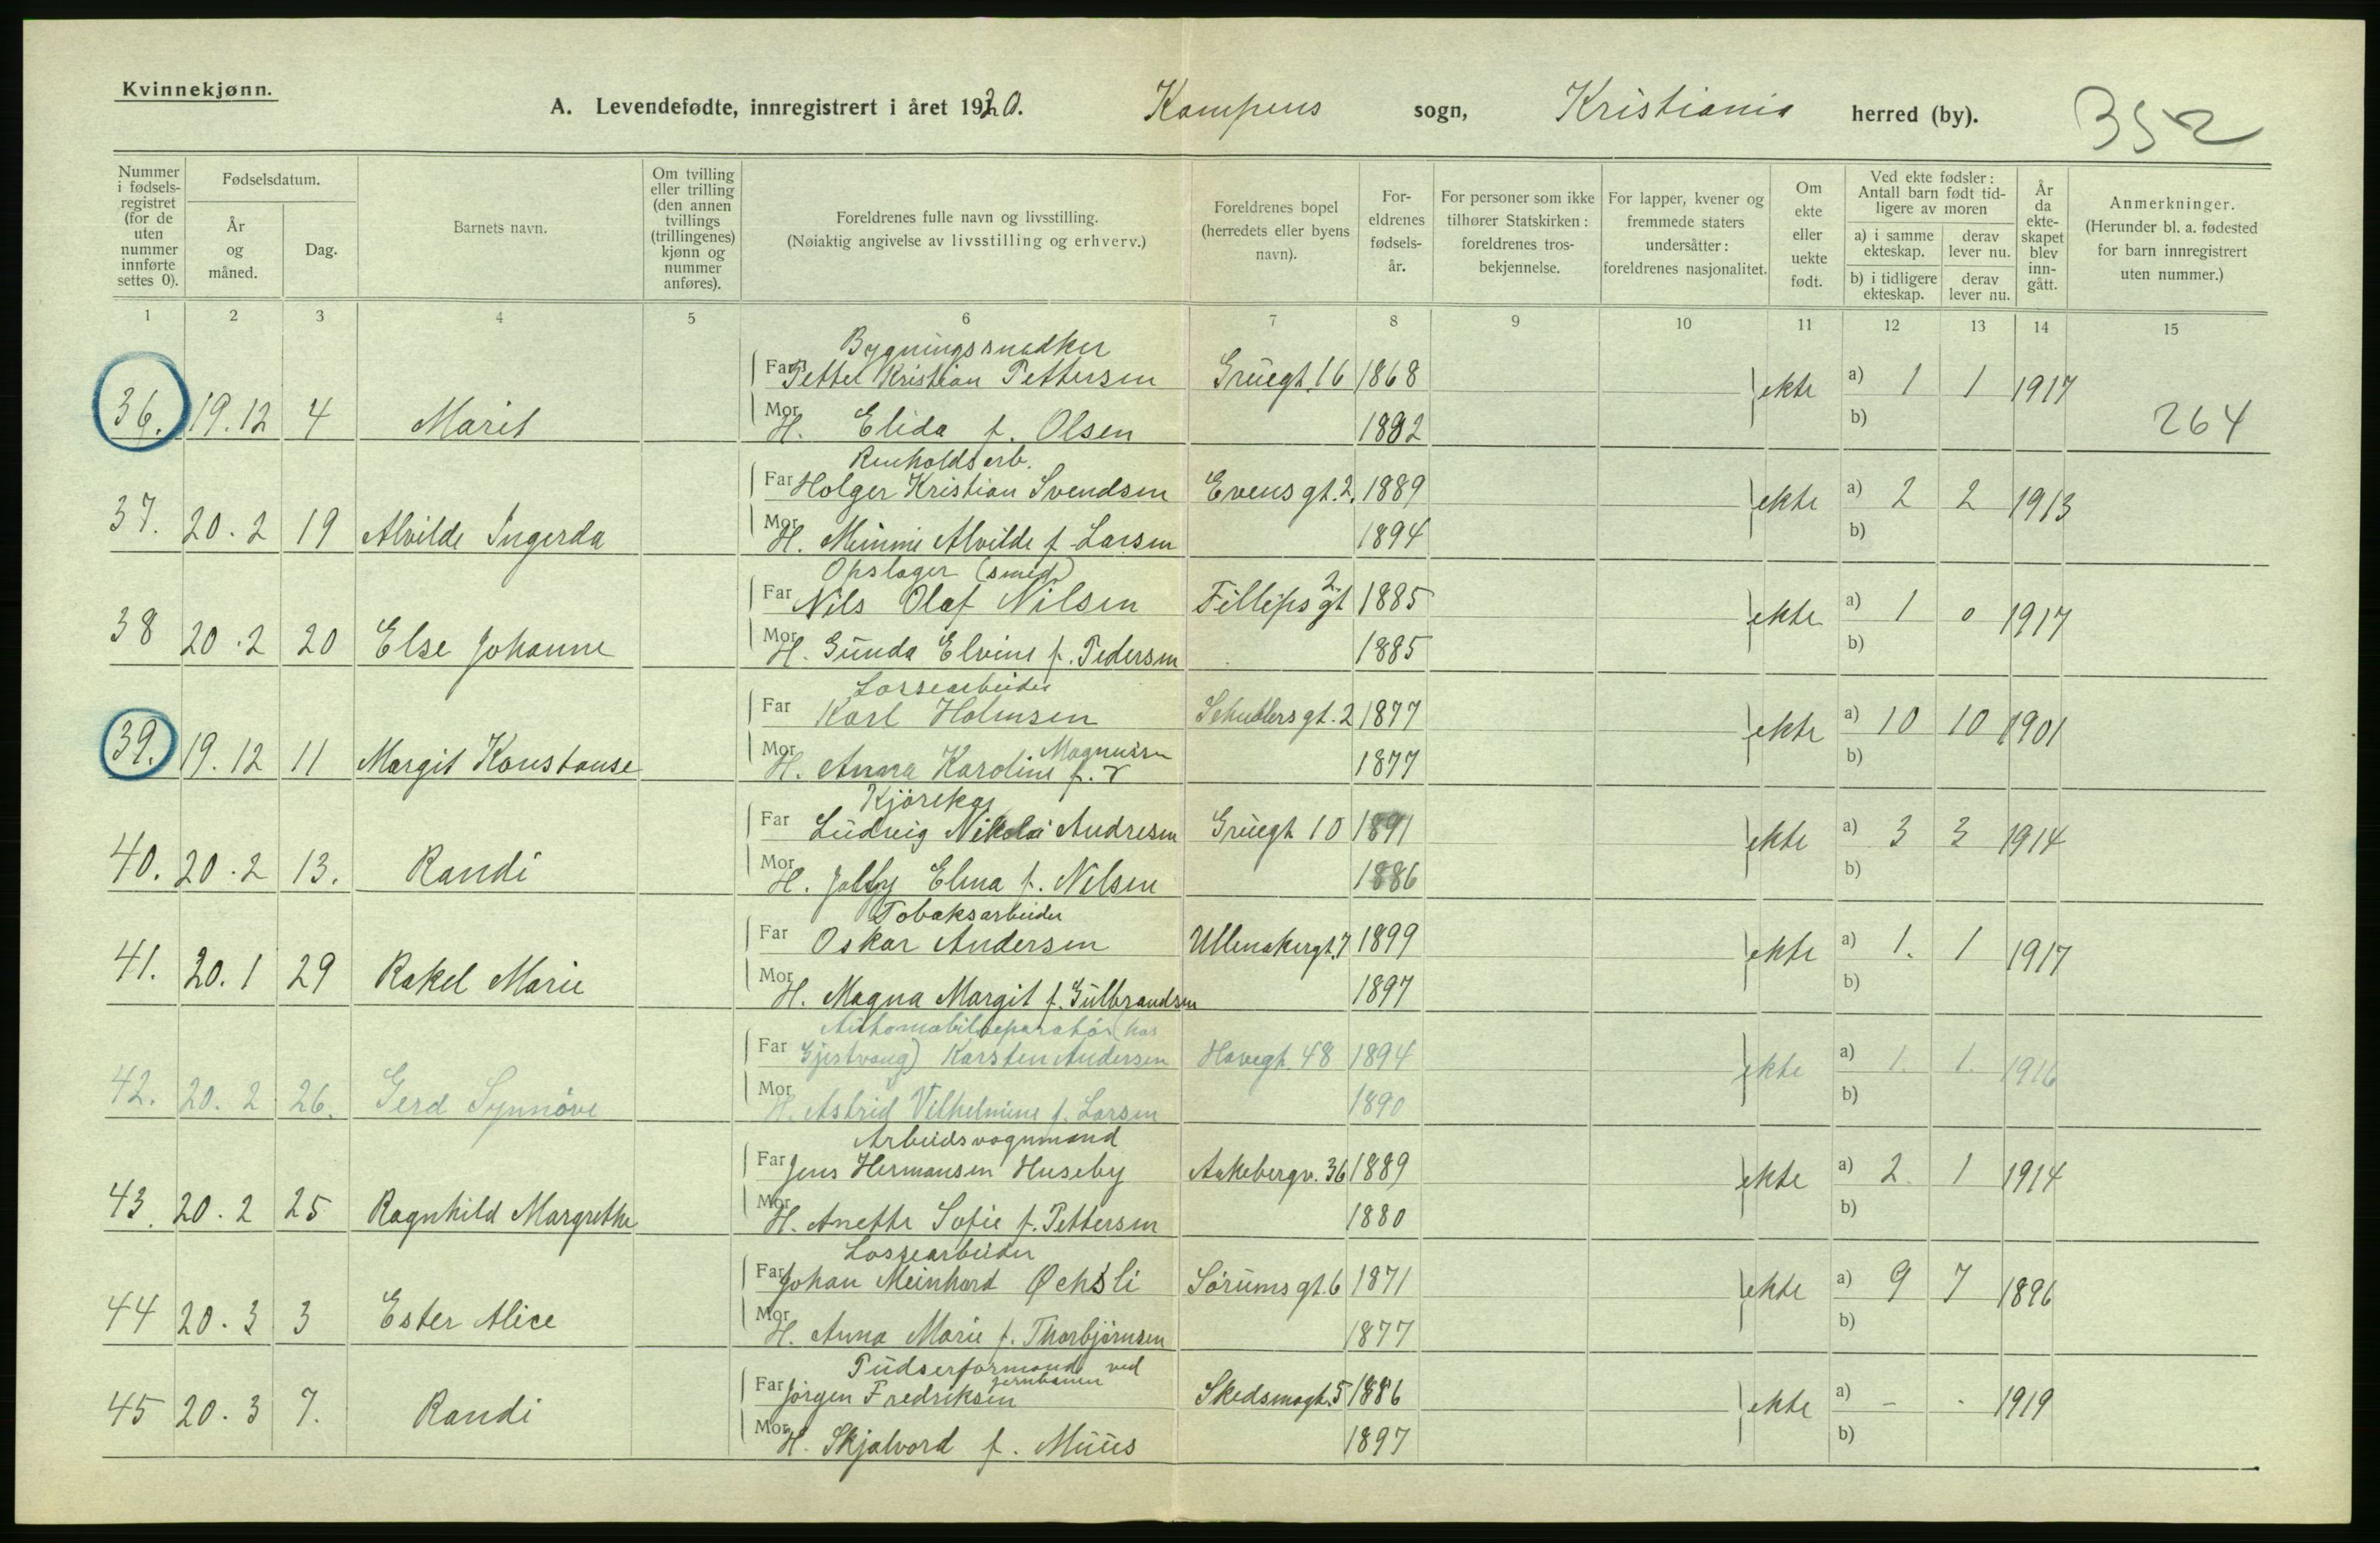 Kvinnekjønn.
A. Levendefødte, innregistrert i året 1920. Kampens sogn, Kristiania herred (by). 352
Nummer i fødsels-registret (for de uten nummer innførte settes 0).
Fødselsdatum.
År og måned.
Dag.
Barnets navn.
Om tvilling eller trilling (den annen tvillings (trillingenes) kjønn og nummer anføres).
Foreldrenes fulle navn og livsstilling.
(Nøiaktig angivelse av livsstilling og erhverv.)
Foreldrenes bopel (herredets eller byens navn).
For-eldrenes fødsels-år.
For personer som ikke tilhører Statskirken: foreldrenes tros-bekjennelse.
For lapper, kvener og fremmede staters undersåtter: foreldrenes nasjonalitet.
Om ekte eller uekte født.
Ved ekte fødsler: Antall barn født tid-ligere av moren
a) i samme ekteskap. derav lever nu.
b) i tidligere ekteskap. derav lever nu.
År da ekte-skapet blev inn-gått.
Anmerkninger.
(Herunder bl. a. fødested for barn innregistrert uten nummer.)
1 2 3 4 5 6 7 8 9 10 11 12 13 14 15
Bygningssnedker
Far Petter Kristian Pettersen Gruegt. 16 1868
36. 19.12 4 Marit ekte a) 1 1 1917
Mor H. Elida f. Olsen 1892 b) 264
Renholdsarb.
Far Holger Kristian Svendsen Evensgt. 2. 1889
37. 20.2 19 Alvilde Ingerda ekte a) 2 2 1913
Mor H. Mimmi Alvilde f. Larsen 1894 b)
Opslager (smed)
Far Nils Olaf Nilsen Fillipsgt 2 1885
38 20.2 20 Else Johanne ekte a) 1 0 1917
Mor H. Gunda Elvine f. Pedersen 1885 b)
Lossearbeider
Far Karl Holmsen Schublersgt. 2 1877
39. 19.12 11 Margit Konstanse ekte a) 10 10 1901
Mor H. Anna Karoline f. Magnussen 1877 b)
Kjörekar
Far Ludvig Nikolai Andresen Gruegt 10 1891
40. 20.2 13. Randi ekte a) 3 3 1914
Mor H. Elma f. Nilsen 1886 b)
Tobaksarbeider
Far Oskar Andersen Ullensakergt. 7 1899
41. 20.1 29 Rakel Marie ekte a) 1. 1 1917
Mor H. Magna Margit f. Gulbrandsen 1897 b)
Automobilreparatör (hos
Far Gjestvang) Karsten Andersen Havegt. 48 1894
42. 20.2 26. Gerd Synnöve ekte a) 1. 1. 1916
Mor H. Astrid Vilhelmine f. Larsen 1890 b)
Arbeidsvognmand
Far Jens Hermansen Huseby Aakebergv. 36 1889
43. 20.2 25 Ragnhild Margrethe ekte a) 2. 1 1914
Mor H. Anette Sofie f. Pettersen 1880 b)
Lossearbeider
Far Johan Meinhard Øchsli Sörumsgt. 6 1871
44 20.3 3 Ester Alice ekte a) 9 7 1896
Mor H. Anna Marie f. Thorbjørnsen 1877 b)
Pudserformand ved jernbanen
Far Jörgen Fredriksen Skedsmogt. 5 1886
45 20.3 7. Randi ekte a) - - 1919
Mor H. Skjalvord f. Muus 1897 b)